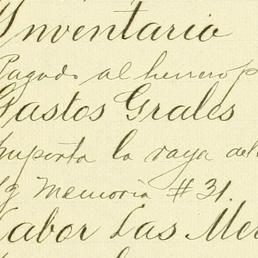 Inventario
Pagado al herrero p
Gastos Grales
Importa la raya del
sg Memoria #31.
Labor Las Me